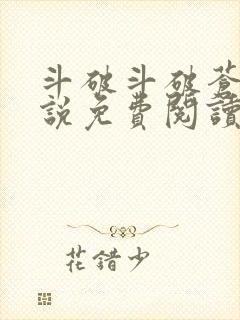 斗破斗破蒼
說免費閱讀
花錯少